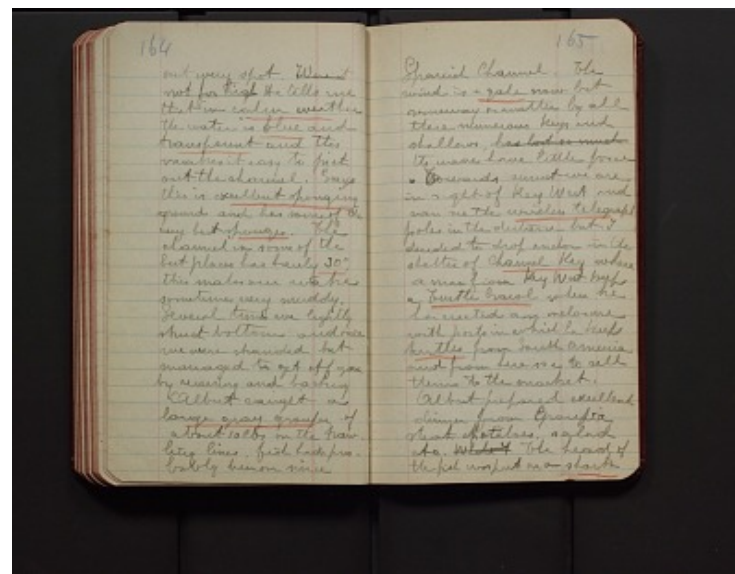 164
out every spot. Were it
not for high He tells me
that in calm weather
the water is blue and
transparent and this
makes it easy to pick
out the channel. Says
this is excellent sponging
ground and has some of the
very best sponges. The
channel in some of the
best places has barely 30"
this makes our wake
sometimes very muddy.
Several times we lightly
struck bottom and once
we were stranded but
managed to get off
by reversing and backing
Albert caught a
large gray grouper of
about 10 lbs on the
lines. fish
165
Spanish Channel. The
wind is a gale now but
someway or matter by all
these numerous Keys and
shallows, has lost so much
the waves have little force
Towards sunset we are
in sight of Key West and
can see the wireless telegraph
poles in the distance but I
decided to drop anchor in the
shelter of Channel Key where
a man from Key West keeps
a Turtle Corral where he
has erected an enclosure
with posts in which he keeps
turtles from South America
and from here on to sell
them to the market.
Albert prepared excellent
dinner from
steak potatoes, salad
etc. The head of
the fish we put on a shark